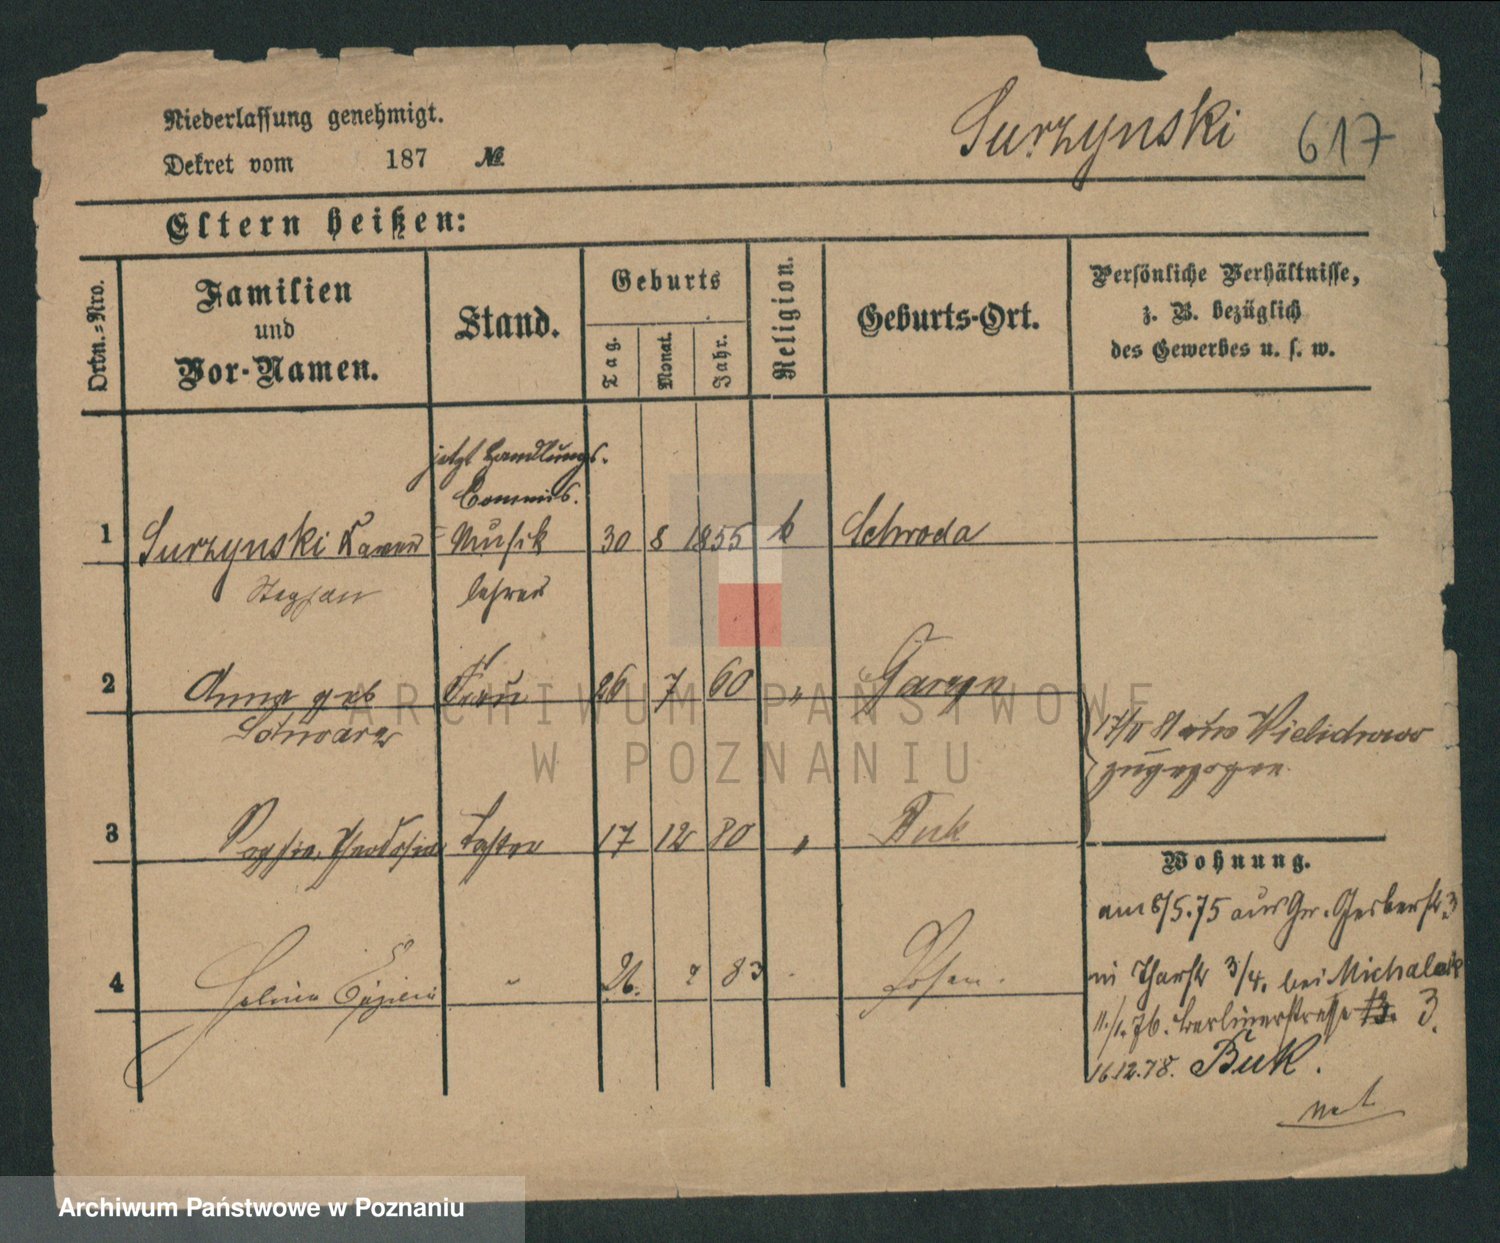 Niederlassung genehmigt.
Dekret vom 187 №
Surzynski 617
Eltern heißen:
Ordn.-Nro.
Familien
und
Vor-Namen.
Stand.
Geburts
Tag.
Monat.
Jahr.
Religion.
Geburts-Ort.
Persönliche Verhältnisse,
z. B. bezüglich
des Gewerbes u. s. w.
jetzt Handlungs-
Commis.
1 Surzynski Xaver Musik 30 8 1855 k Schroda
Stephan lehrer
2 Anna geb Frau 26 7 60 "
Schwarz
17/II 81 aus Wielichowo
zugezogen
3 Theodosia Tochter 17 12 80 " Buk
Wohnung.
am 8/5.75 aus Gr. Gerberstr. 3
4 Halina 26. 83 Posen.
in Thorstr 3/4. bei Michalak
11./1. 76. Berlinerstrasse 13. 3.
16.12.78. Buk.
ARCHIWUM PAŃSTWOWE
W POZNANIU
Archiwum Państwowe w Poznaniu